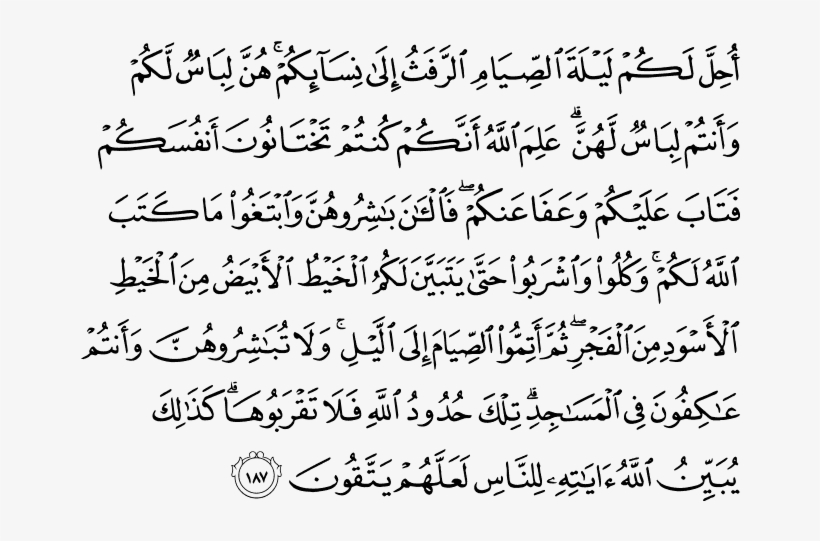 أُحِلَّ لَكُمۡ لَيۡلَةَ ٱلصِّيَامِ ٱلرَّفَثُ إِلَىٰ نِسَآئِكُمۡۚ هُنَّ لِبَاسٞ لَّكُمۡ
وَأَنتُمۡ لِبَاسٞ لَّهُنَّۗ عَلِمَ ٱللَّهُ أَنَّكُمۡ كُنتُمۡ تَخۡتَانُونَ أَنفُسَكُمۡ
فَتَابَ عَلَيۡكُمۡ وَعَفَا عَنكُمۡۖ فَٱلۡـَٰٔنَ بَٰشِرُوهُنَّ وَٱبۡتَغُواْ مَا كَتَبَ
ٱللَّهُ لَكُمۡۚ وَكُلُواْ وَٱشۡرَبُواْ حَتَّىٰ يَتَبَيَّنَ لَكُمُ ٱلۡخَيۡطُ ٱلۡأَبۡيَضُ مِنَ ٱلۡخَيۡطِ
ٱلۡأَسۡوَدِ مِنَ ٱلۡفَجۡرِۖ ثُمَّ أَتِمُّواْ ٱلصِّيَامَ إِلَى ٱلَّيۡلِۚ وَلَا تُبَٰشِرُوهُنَّ وَأَنتُمۡ
عَٰكِفُونَ فِي ٱلۡمَسَٰجِدِۗ تِلۡكَ حُدُودُ ٱللَّهِ فَلَا تَقۡرَبُوهَاۗ كَذَٰلِكَ
يُبَيِّنُ ٱللَّهُ ءَايَٰتِهِۦ لِلنَّاسِ لَعَلَّهُمۡ يَتَّقُونَ ١٨٧